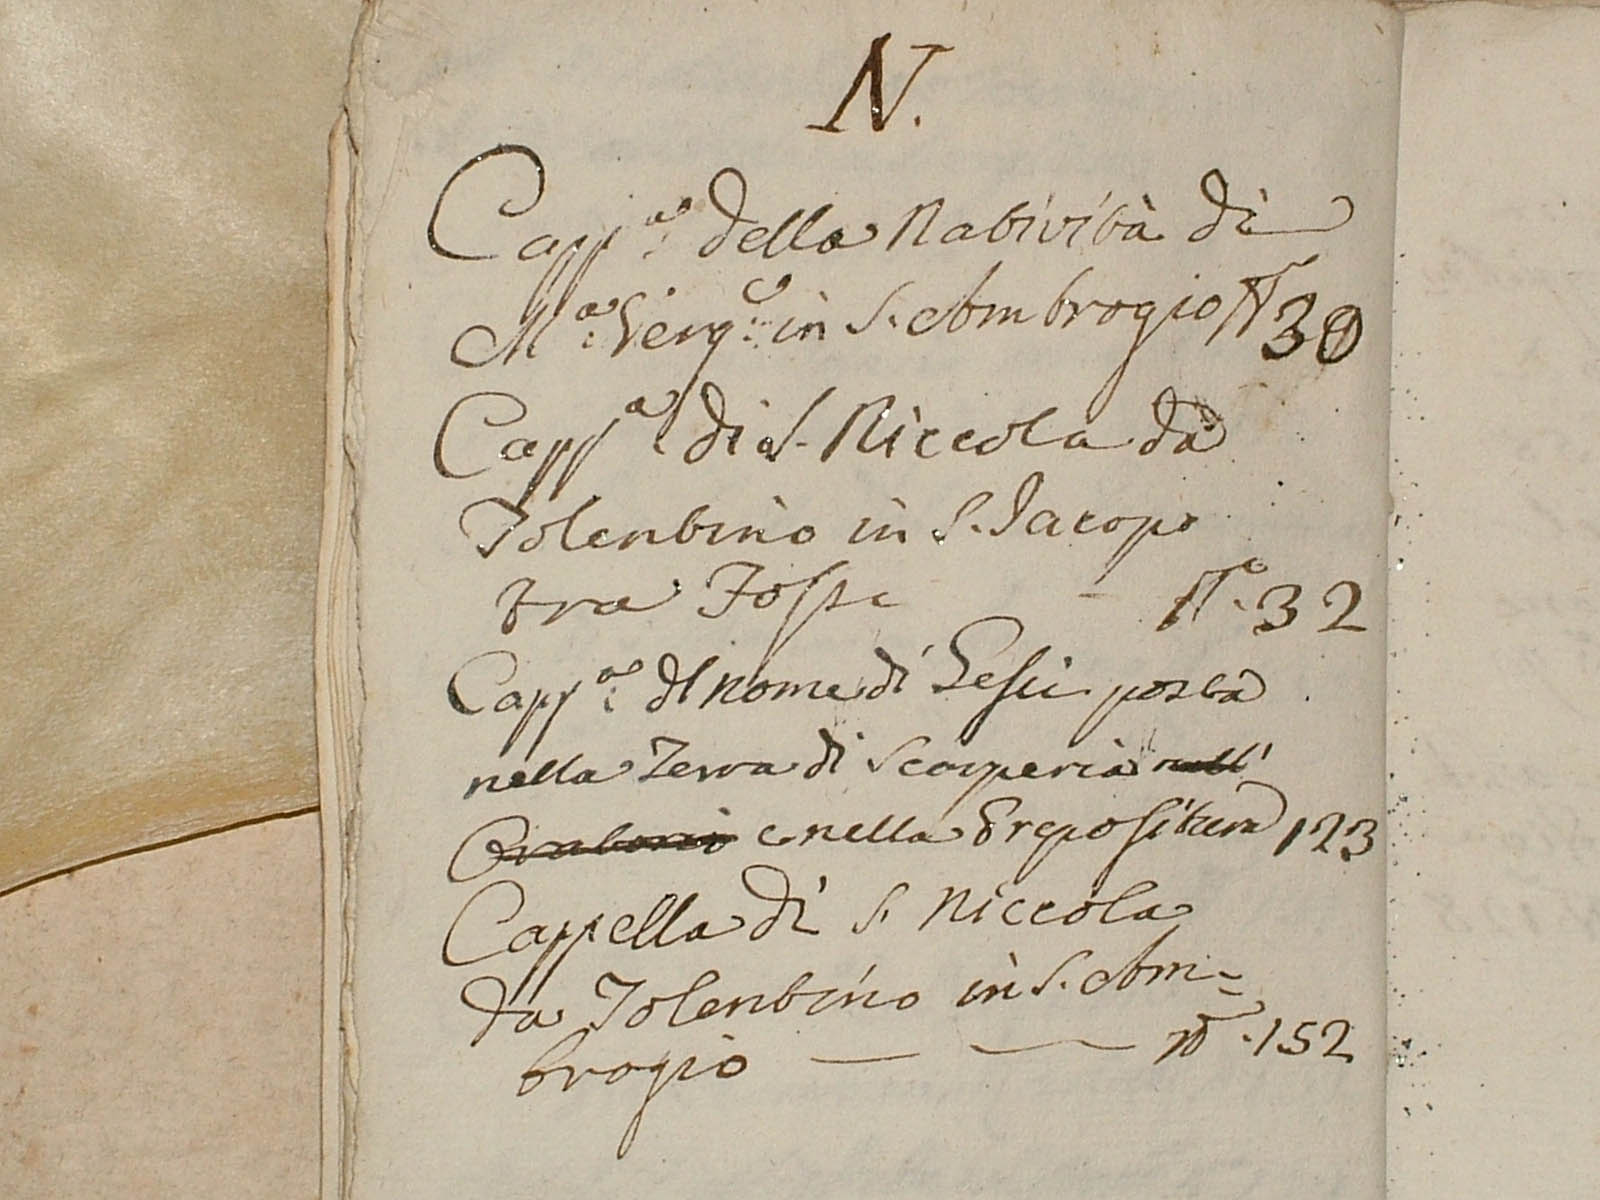 N.
Capp.a della Natività di
M.a Verg.e in S. Ambrogio N.o 30
Capp.a di S. Niccola da
Tolentino in S. Jacopo
tra Fossi - N.o 32
Capp.a dl nome di Gesù posta
nella Terra di Scarperia nell'
Oratorio e nella Prepositura 123
Cappella di S. Niccola
da Tolentino in S. Am=
brogio — — N.o 152